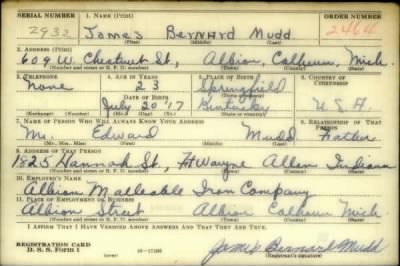 SERIAL NUMBER 1. NAME (Print) ORDER NUMBER
2932 James Bernard Mudd 2464
(First) (Middle) (Last)
2. ADDRESS (Print)
609 W. Chestnut St., Albion, Calhoun, Mich.
(Number and street or R. F. D. number) (Town) (County) (State)
3. TELEPHONE 4. AGE IN YEARS 5. PLACE OF BIRTH 6. COUNTRY OF CITIZENSHIP
None 23 Springfield
DATE OF BIRTH
July 20 '17 Kentucky U.S.A.
(Exchange) (Number) (Mo.) (Day) (Yr.) (State or country)
7. NAME OF PERSON WHO WILL ALWAYS KNOW YOUR ADDRESS 8. RELATIONSHIP OF THAT PERSON
Mr. Edward Mudd Father
(Mr., Mrs., Miss) (First) (Middle) (Last)
9. ADDRESS OF THAT PERSON
1825 Hannah St., Ft Wayne Allen Indiana
(Number and street or R. F. D. number) (Town) (County) (State)
10. EMPLOYER'S NAME
Albion Malleable Iron Company
11. PLACE OF EMPLOYMENT OR BUSINESS
Albion Street Albion Calhoun Mich
(Number and street or R. F. D. number) (Town) (County) (State)
I AFFIRM THAT I HAVE VERIFIED ABOVE ANSWERS AND THAT THEY ARE TRUE.
REGISTRATION CARD
D. S. S. Form 1 (over) James Bernard Mudd
(Registrant's signature)